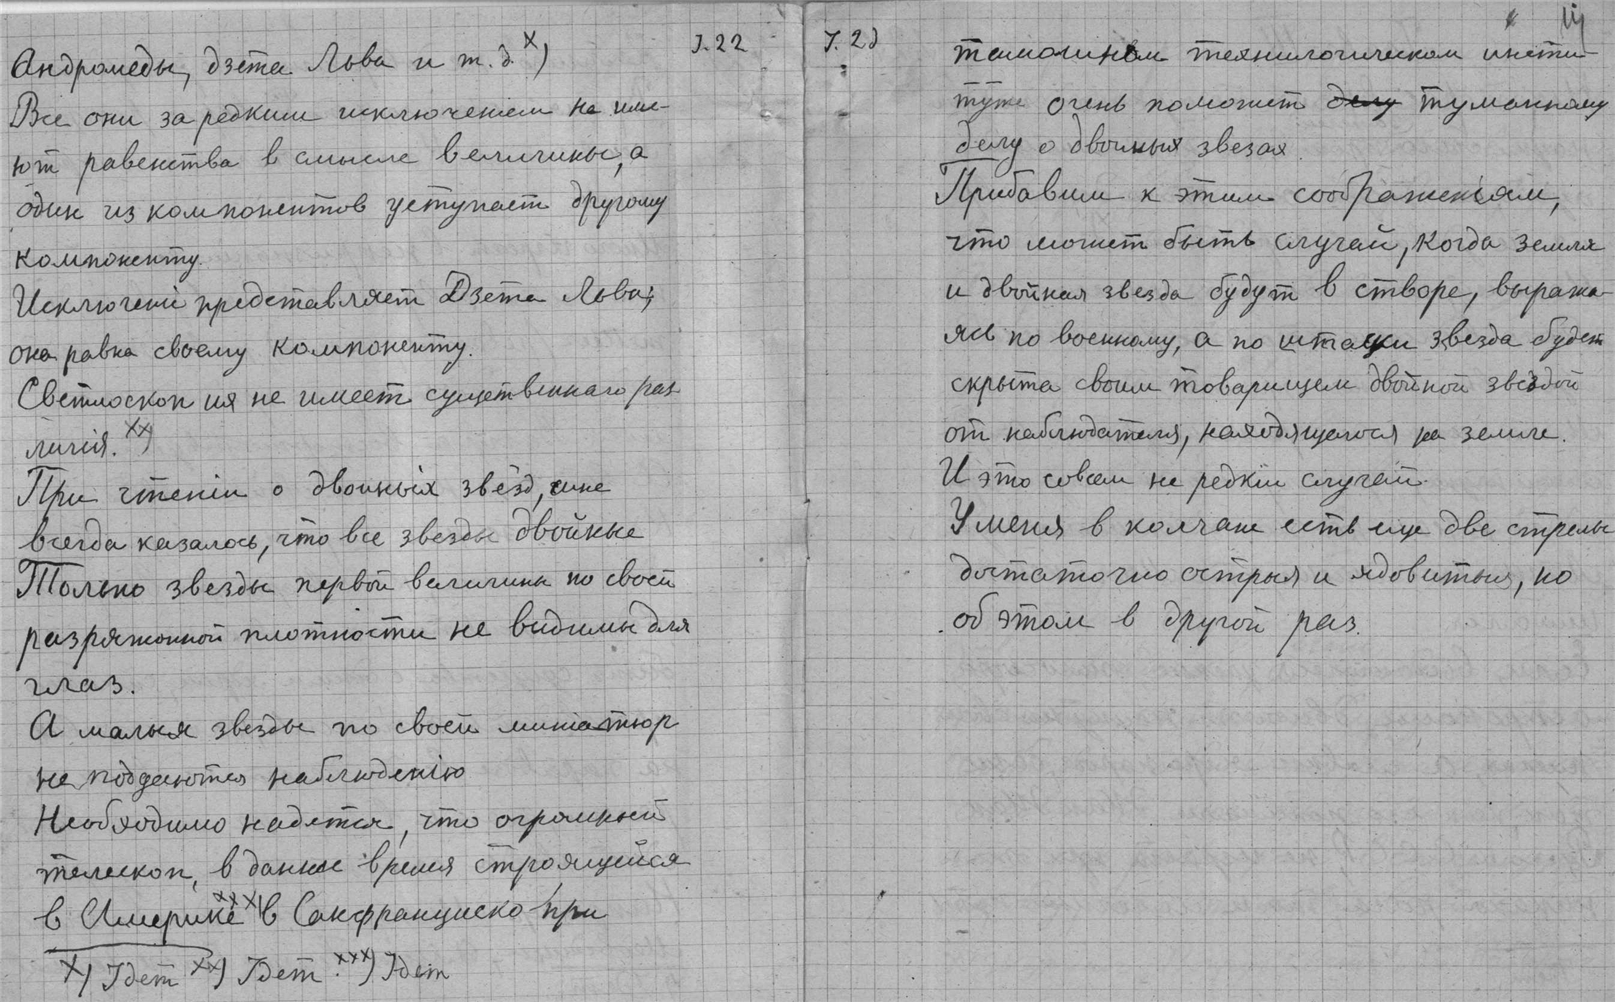 I.22
Андромеды, дзета Льва и т.д. x)
Все они за редким исключением не име-
ют равенства в смысле величины, а
один из компонентов уступает другому
компоненту.
Исключенiе представляет Дзета Льва;
она равна своему компоненту.
Светлоскопия не имеет существеннаго раз-
личiя. xx)
При чтенiи о двойных звёзд, мне
всегда казалось, что все звезды двойные
Только звезды первой величины по своей
разряжонной плотности не видимы для
глаз.
А малыя звезды по своей миниатюр
не поддаются наблюденiю
Необходимо надется, что огромный
телескоп, в данное время строящейся
в Америке xxx) в Санфранциско при
x) Iдет xx) Iдет xxx) Iдет
I.23
тамошнем технилогическом инсти-
туте очень поможет делу туманному
делу о двойных звезах.
Прибавим к этим соображеньям,
что может быть случай, когда земля
и двойная звезда будут в створе, выража-
ясь по военному, а по штацки звезда будет
скрыта своим товарищем двойной звездой
от наблюдателя, находящегося на земле.
И это совсем не редкiй случай.
У меня в колчане есть еще две стрелы
достаточно острыя и ядовитыя, но
об этом в другой раз.